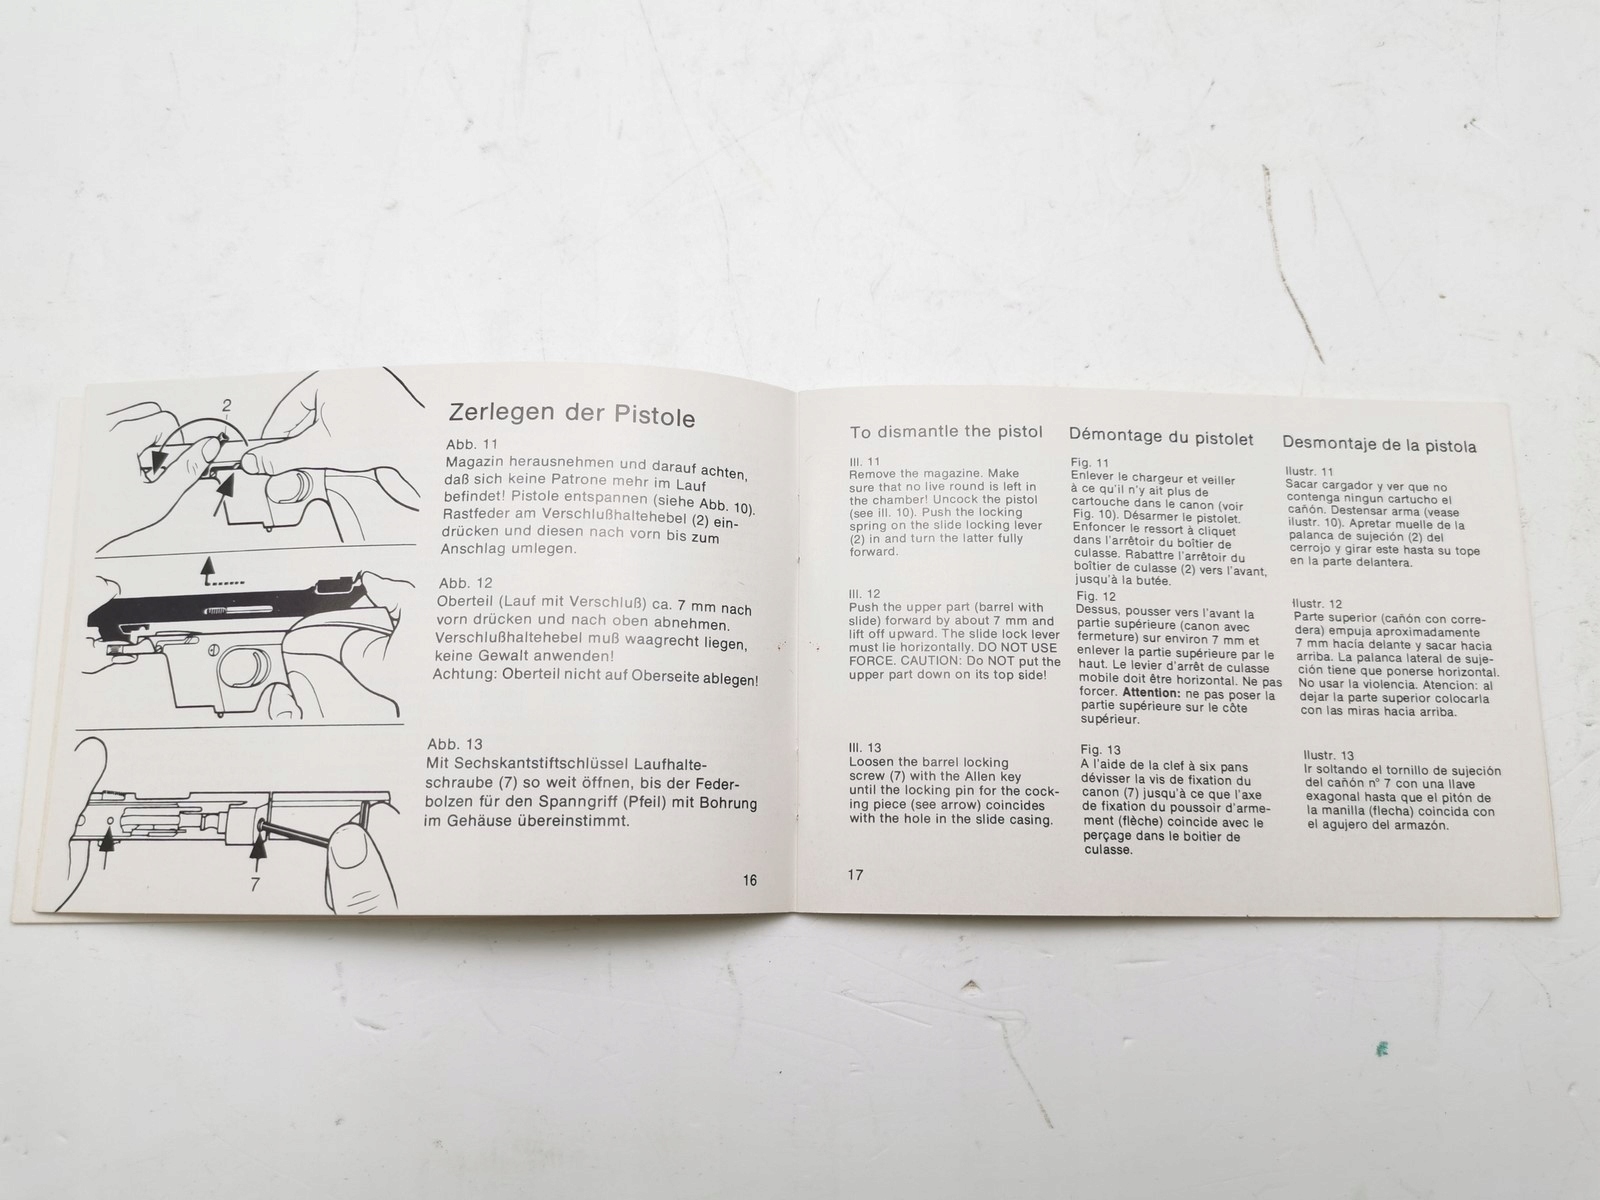 2
7
Zerlegen der Pistole
Abb. 11
Magazin herausnehmen und darauf achten,
daß sich keine Patrone mehr im Lauf
befindet! Pistole entspannen (siehe Abb. 10).
Rastfeder am Verschlußhaltehebel (2) ein-
drücken und diesen nach vorn bis zum
Anschlag umlegen.
Abb. 12
Oberteil (Lauf mit Verschluß) ca. 7 mm nach
vorn drücken und nach oben abnehmen.
Verschlußhaltehebel muß waagrecht liegen,
keine Gewalt anwenden!
Achtung: Oberteil nicht auf Oberseite ablegen!
Abb. 13
Mit Sechskantstiftschlüssel Laufhalte-
schraube (7) so weit öffnen, bis der Feder-
bolzen für den Spanngriff (Pfeil) mit Bohrung
im Gehäuse übereinstimmt.
16
To dismantle the pistol
III. 11
Remove the magazine. Make
sure that no live round is left in
the chamber! Uncock the pistol
(see ill. 10). Push the locking
spring on the slide locking lever
(2) in and turn the latter fully
forward.
III. 12
Push the upper part (barrel with
slide) forward by about 7 mm and
lift off upward. The slide lock lever
must lie horizontally. DO NOT USE
FORCE. CAUTION: Do NOT put the
upper part down on its top side!
III. 13
Loosen the barrel locking
screw (7) with the Allen key
until the locking pin for the cock-
ing piece (see arrow) coincides
with the hole in the slide casing.
17
Démontage du pistolet
Fig. 11
Enlever le chargeur et veiller
à ce qu'il n'y ait plus de
cartouche dans le canon (voir
Fig. 10). Désarmer le pistolet.
Enfoncer le ressort à cliquet
dans l'arrêtoir du boîtier de
culasse. Rabattre l'arrêtoir du
boîtier de culasse (2) vers l'avant,
jusqu'à la butée.
Fig. 12
Dessus, pousser vers l'avant la
partie supérieure (canon avec
fermeture) sur environ 7 mm et
enlever la partie supérieure par le
haut. Le levier d'arrêt de culasse
mobile doit être horizontal. Ne pas
forcer. Attention: ne pas poser la
partie supérieure sur le côte
supérieur.
Fig. 13
A l'aide de la clef à six pans
dévisser la vis de fixation du
canon (7) jusqu'à ce que l'axe
de fixation du poussoir d'arme-
ment (flèche) coincide avec le
perçage dans le boitier de
culasse.
Desmontaje de la pistola
Ilustr. 11
Sacar cargador y ver que no
contenga ningun cartucho el
cañón. Destensar arma (vease
ilustr. 10). Apretar muelle de la
palanca de sujeción (2) del
cerrojo y girar este hasta su tope
en la parte delantera.
Ilustr. 12
Parte superior (cañón con corre-
dera) empuja aproximadamente
7 mm hacía delante y sacar hacia
arriba. La palanca lateral de suje-
ción tiene que ponerse horizontal.
No usar la violencia. Atencion: al
dejar la parte superior colocarla
con las miras hacia arriba.
Ilustr. 13
Ir soltando el tornillo de sujeción
del cañón n° 7 con una llave
exagonal hasta que el pitón de
la manilla (flecha) coincida con
el agujero del armazón.